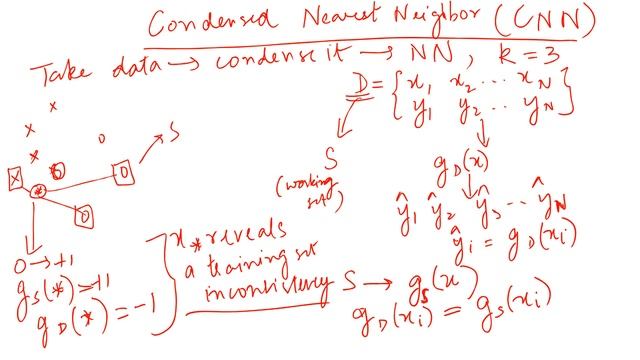 Condensed Nearest Neighbor (CNN)
Take data → condense it → NN, k = 3
D = { x₁ x₂ ... x_N
y₁ y₂ .. y_N }
S
(working set)
g_D(x)
ŷ₁ ŷ₂ ŷ₃ ... ŷ_N
ŷ_i = g_D(x_i)
S → g_S(x)
g_D(x_i) = g_S(x_i)
S
O → +1
g_S(*) = +1
g_D(*) = -1
x_* reveals
a training set
inconsistency